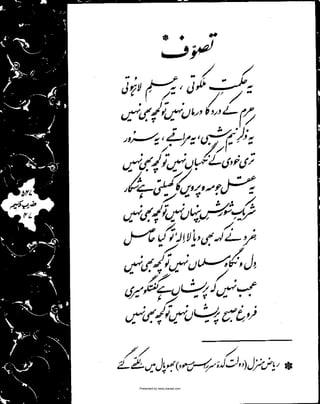 تصوّف *
یہ حکمتِ ملکوتی، یہ علمِ لاہوتی
حرم کے درد کا درماں نہیں تو کچھ بھی نہیں
یہ ذکرِ نیم شبی، یہ مراقبے، یہ سرور
تری خودی کے نگہباں نہیں تو کچھ بھی نہیں
یہ عقل، جو مہ و پرویں کا کھیلتی ہے شکار
شریکِ شورشِ پنہاں نہیں تو کچھ بھی نہیں
خرد نے کہہ بھی دیا لاالٰہ تو کیا حاصل
دل و نگاہ مسلماں نہیں تو کچھ بھی نہیں
عجب نہیں کہ پریشاں ہے گفتگو میری
فروغِ صبح پریشاں نہیں تو کچھ بھی نہیں
* ریاض منزل (دولت کدۂ سر راس مسعود) بھوپال میں لکھے گئے
Presented by www.ziaraat.com